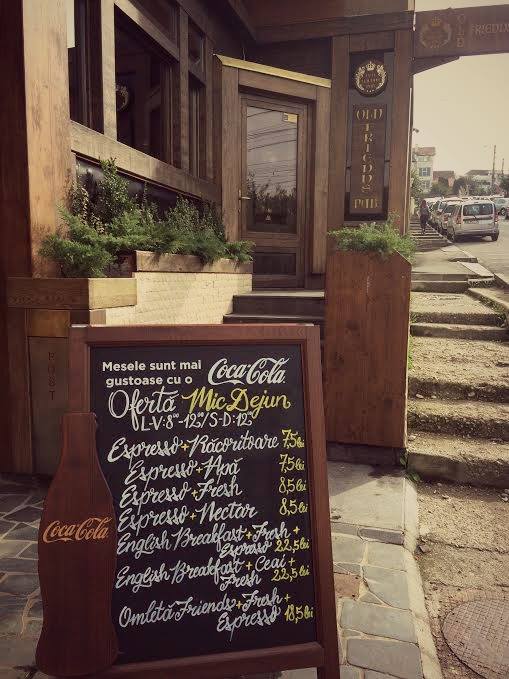 OLD
FRIENDS
OLD
FRIENDS
PUB
Mesele sunt mai
gustoase cu o Coca-Cola
Ofertă Mic Dejun
L-V:8⁰⁰-12⁰⁰/S-D:12⁰⁰
Espresso+Răcoritoare 7,5 lei
Espresso+Apă 7,5 lei
Espresso+Fresh 8,5 lei
Espresso+Nectar 8,5 lei
English Breakfast+Fresh+
Espresso 22,5 lei
English Breakfast+Ceai+
Fresh 22,5 lei
Omletă Friends+Fresh+
Espresso 18,5 lei
Coca-Cola
POST